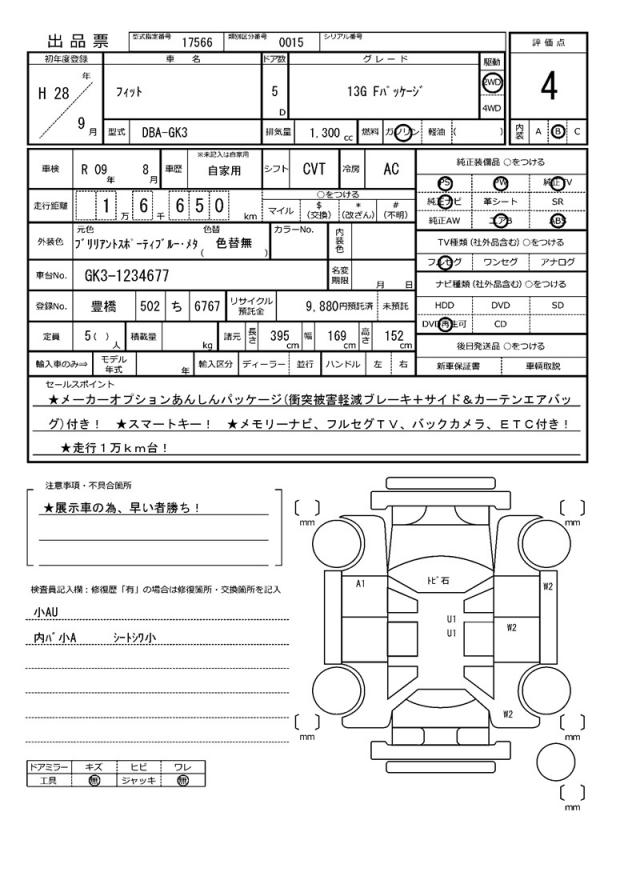 出品票 型式指定番号 17566 類別区分番号 0015 シリアル番号
評価点
4
内装 A B C
初年度登録 車名 ドア数 グレード 駆動
H 28年 9月 フィット 5D 13G Fパッケージ 2WD 4WD
型式 DBA-GK3 排気量 1,300 cc 燃料 ガソリン 軽油 ( )
車検 R 09年 8月 車歴 ※未記入は自家用 自家用 シフト CVT 冷房 AC
走行距離 1万 6千 6 5 0 km ○をつける マイル $(交換) *(改ざん) #(不明)
外装色 元色 ブリリアントスポーティブルー・メタ 色替 ( 色替無 ) カラーNo. 内装色
車台No. GK3-1234677 名変期限 月 日
登録No. 豊橋 502 ち 6767 リサイクル預託金 9,880円預託済 未預託
定員 5( )人 積載量 kg 諸元 長さ 395cm 幅 169cm 高さ 152cm
輸入車のみ⇒ モデル年式 年 輸入区分 ディーラー 並行 ハンドル 左 右
純正装備品 ○をつける
PS PW 純正TV
純正ナビ 革シート SR
純正AW エアB ABS
TV種類(社外品含む)○をつける
フルセグ ワンセグ アナログ
ナビ種類(社外品含む)○をつける
HDD DVD SD
DVD再生可 CD
後日発送品 ○をつける
新車保証書 車輌取説
セールスポイント
★メーカーオプションあんしんパッケージ(衝突被害軽減ブレーキ+サイド&カーテンエアバッ
グ)付き! ★スマートキー! ★メモリーナビ、フルセグTV、バックカメラ、ETC付き!
★走行1万km台!
注意事項・不具合箇所
★展示車の為、早い者勝ち!
検査員記入欄:修復歴「有」の場合は修復箇所・交換箇所を記入
小AU
内バ小A シートシワ小
ドアミラー キズ ヒビ ワレ
工具 無 ジャッキ 無
mm
mm
A1
トビ石
W2
U1
U1
W2
W2
mm
mm
mm